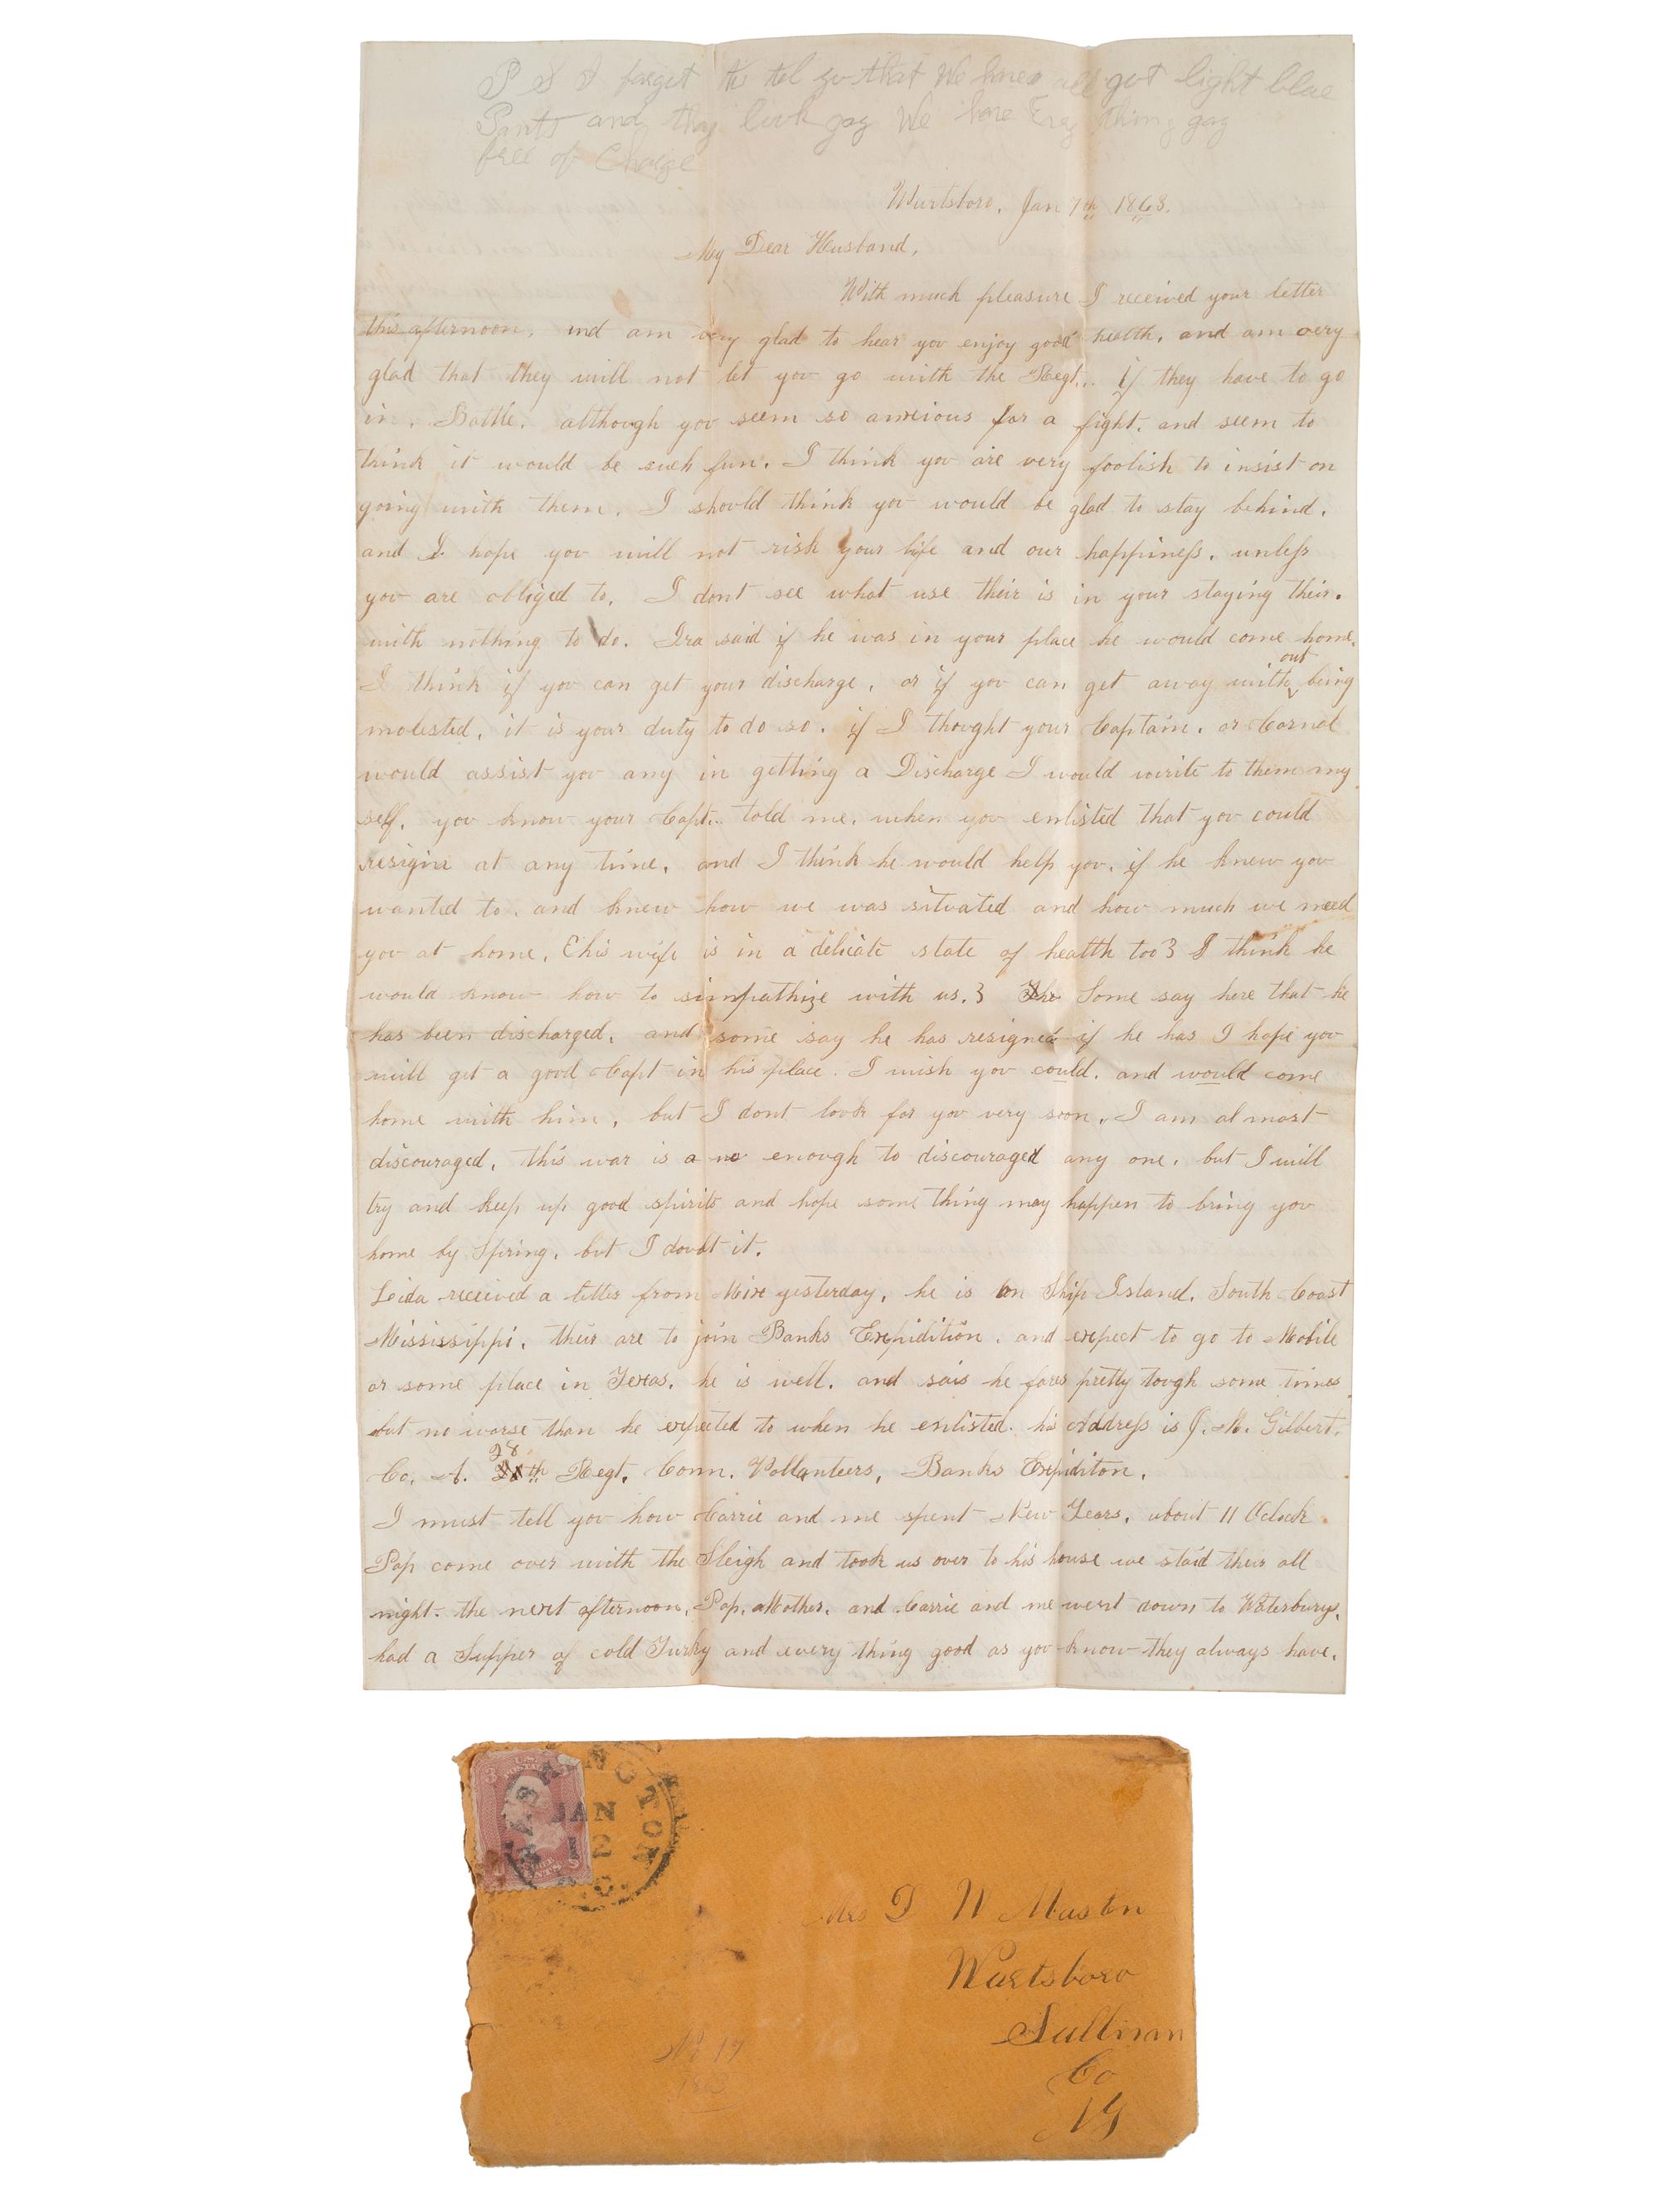 P S I forget to tel yu that We have all got light blue
Pants and thay look gay We have Evry thing gay
free of Charge
Wurtsboro, Jan 7th 1863.
My Dear Husband,
With much pleasure I received your letter
this afternoon, and am very glad to hear you enjoy good health, and am very
glad that they will not let you go with the Regt.. if they have to go
in, Battle, although you seem so anxious for a fight, and seem to
think it would be such fun. I think you are very foolish to insist on
going with them, I should think you would be glad to stay behind,
and I hope you will not risk your life and our happiness, unless
you are obliged to, I dont see what use their is in your staying their.
with nothing to do. Ira said if he was in your place he would come home.
I think if you can get your discharge, or if you can get away without being
molested, it is your duty to do so. if I thought your Captain, or Cornel
would assist you any in getting a Discharge I would write to them my
self, you know your Capt.. told me, when you enlisted that you could
resigne at any time, and I think he would help you, if he knew you
wanted to, and knew how we was situated and how much we need
you at home, {his wife is in a delicate state of health too} I think he
would know how to simpathize with us.} Some say here that he
has been discharged, and some say he has resigned if he has I hope you
will get a good Capt in his place. I wish you could, and would come
home with him, but I dont look for you very soon, I am almost
discouraged, this war is enough to discouraged any one, but I will
try and keep up good spirits and hope some thing may happen to bring you
home by Spring, but I doubt it.
Leida received a letter from Mire yesterday, he is on Ship Island, South Coast
Mississippi, their are to join Banks Expidition, and expect to go to Mobile
or some place in Texas, he is well, and sais he fares pretty tough some times
but no worse than he expected to when he enlisted. his Address is J. M. Gilbert.
Co. A. 28th Regt, Conn. Vollanteers, Banks Expiditon.
I must tell you how Carrie and me spent New Years, about 11 Oclock
Pap come over with the Sleigh and took us over to his house we staid their all
night. the next afternoon, Pap, Mother, and Carrie and me went down to Waterburys,
had a Supper of cold Turky and every thing good as you know they always have.
WASHINGTON
JAN
12
D.C.
Mrs D W Masten
Wurtsboro
Sullivan
Co
NY
No 17
1863